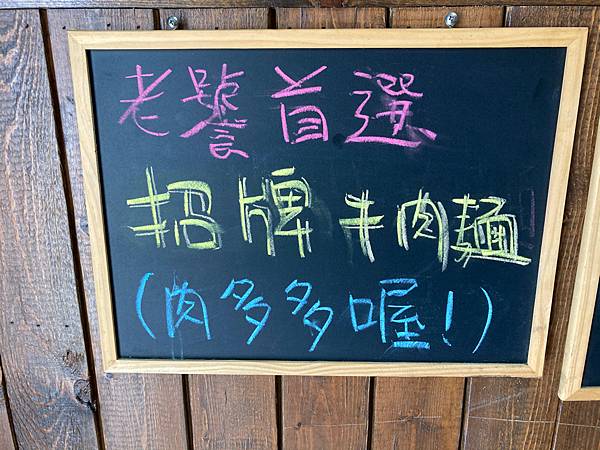 老饕首選
招牌牛肉麵
(肉多多喔!)